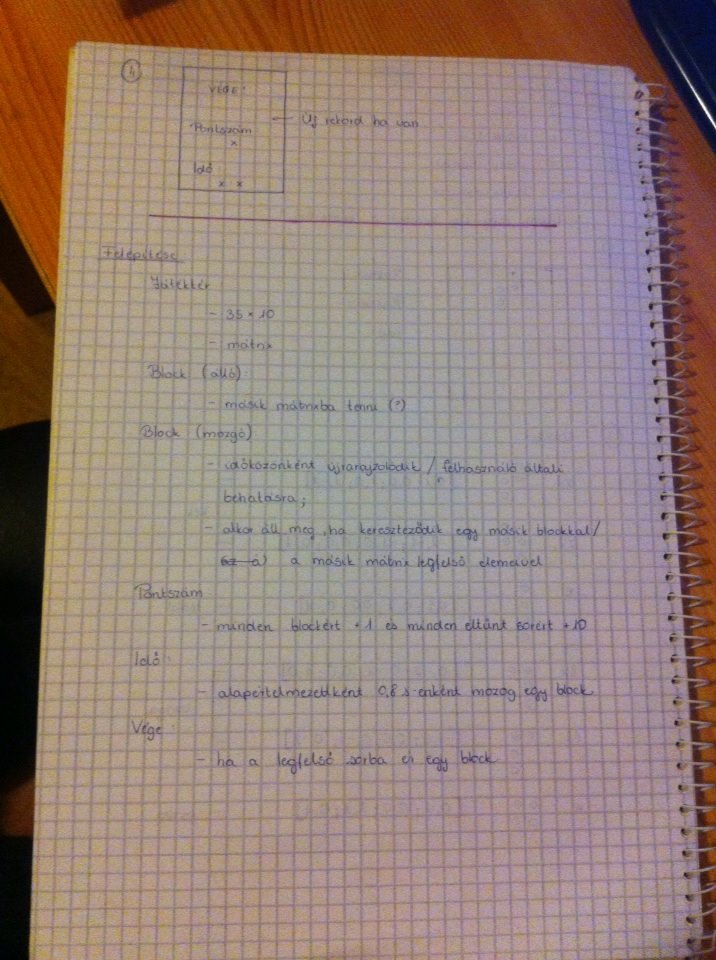 4
VÉGE:
Új rekord ha van
Pontszám
x
Idő
x x
Felépítése
Játéktér
- 35 × 10
- mátrix
Block (álló):
- másik mátrixba tenni (?)
Block (mozgó)
- időközönként újrarajzolódik / felhasználó általi
behatásra;
- akkor áll meg, ha kereszteződik egy másik blockkal /
a másik mátrix legfelső elemeivel
Pontszám
- minden blockért +1 és minden eltűnt sorért +10
Idő:
- alapértelmezettként 0,8 s-enként mozog egy block
Vége:
- ha a legfelső sorba ér egy block